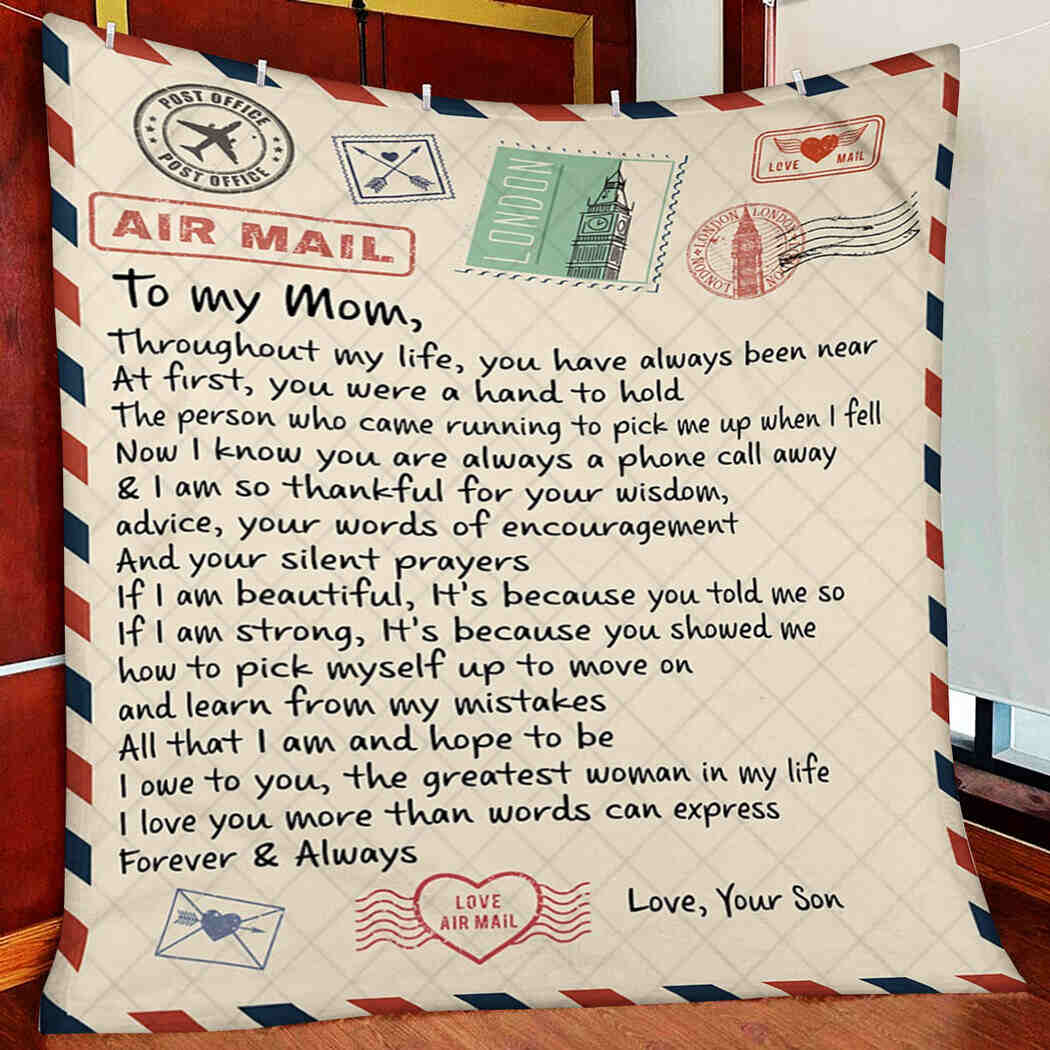 POST OFFICE
POST OFFICE
LONDON
LOVE MAIL
AIR MAIL
LONDON LONDON
LONDON LONDON
To my Mom,
Throughout my life, you have always been near
At first, you were a hand to hold
The person who came running to pick me up when I fell
Now I know you are always a phone call away
& I am so thankful for your wisdom,
advice, your words of encouragement
And your silent prayers
If I am beautiful, It's because you told me so
If I am strong, It's because you showed me
how to pick myself up to move on
and learn from my mistakes
All that I am and hope to be
I owe to you, the greatest woman in my life
I love you more than words can express
Forever & Always
LOVE
AIR MAIL
Love, Your Son